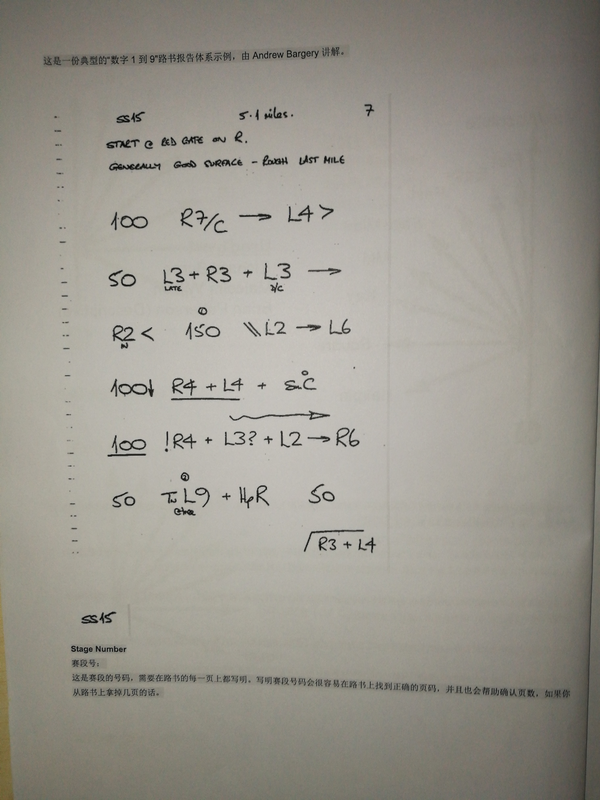 这是一份典型的“数字 1 到 9”路书报告体系示例，由 Andrew Bargery 讲解。
SS15 5.1 miles. 7
START @ RED GATE ON R.
GENERALLY GOOD SURFACE - ROUGH LAST MILE
100 R7/C → L4 >
50 L3 + R3 + L3 →
LATE /C
①
R2 < 150 \\ L2 → L6
N
100↓ R4 + L4 +
100 !R4 + L3? + L2 → R6
②
50 L9 + HpR 50
R3 + L4
SS15
Stage Number
赛段号：
这是赛段的号码，需要在路书的每一页上都写明。写明赛段号码会很容易在路书上找到正确的页码，并且也会帮助确认页数，如果你
从路书上拿掉几页的话。